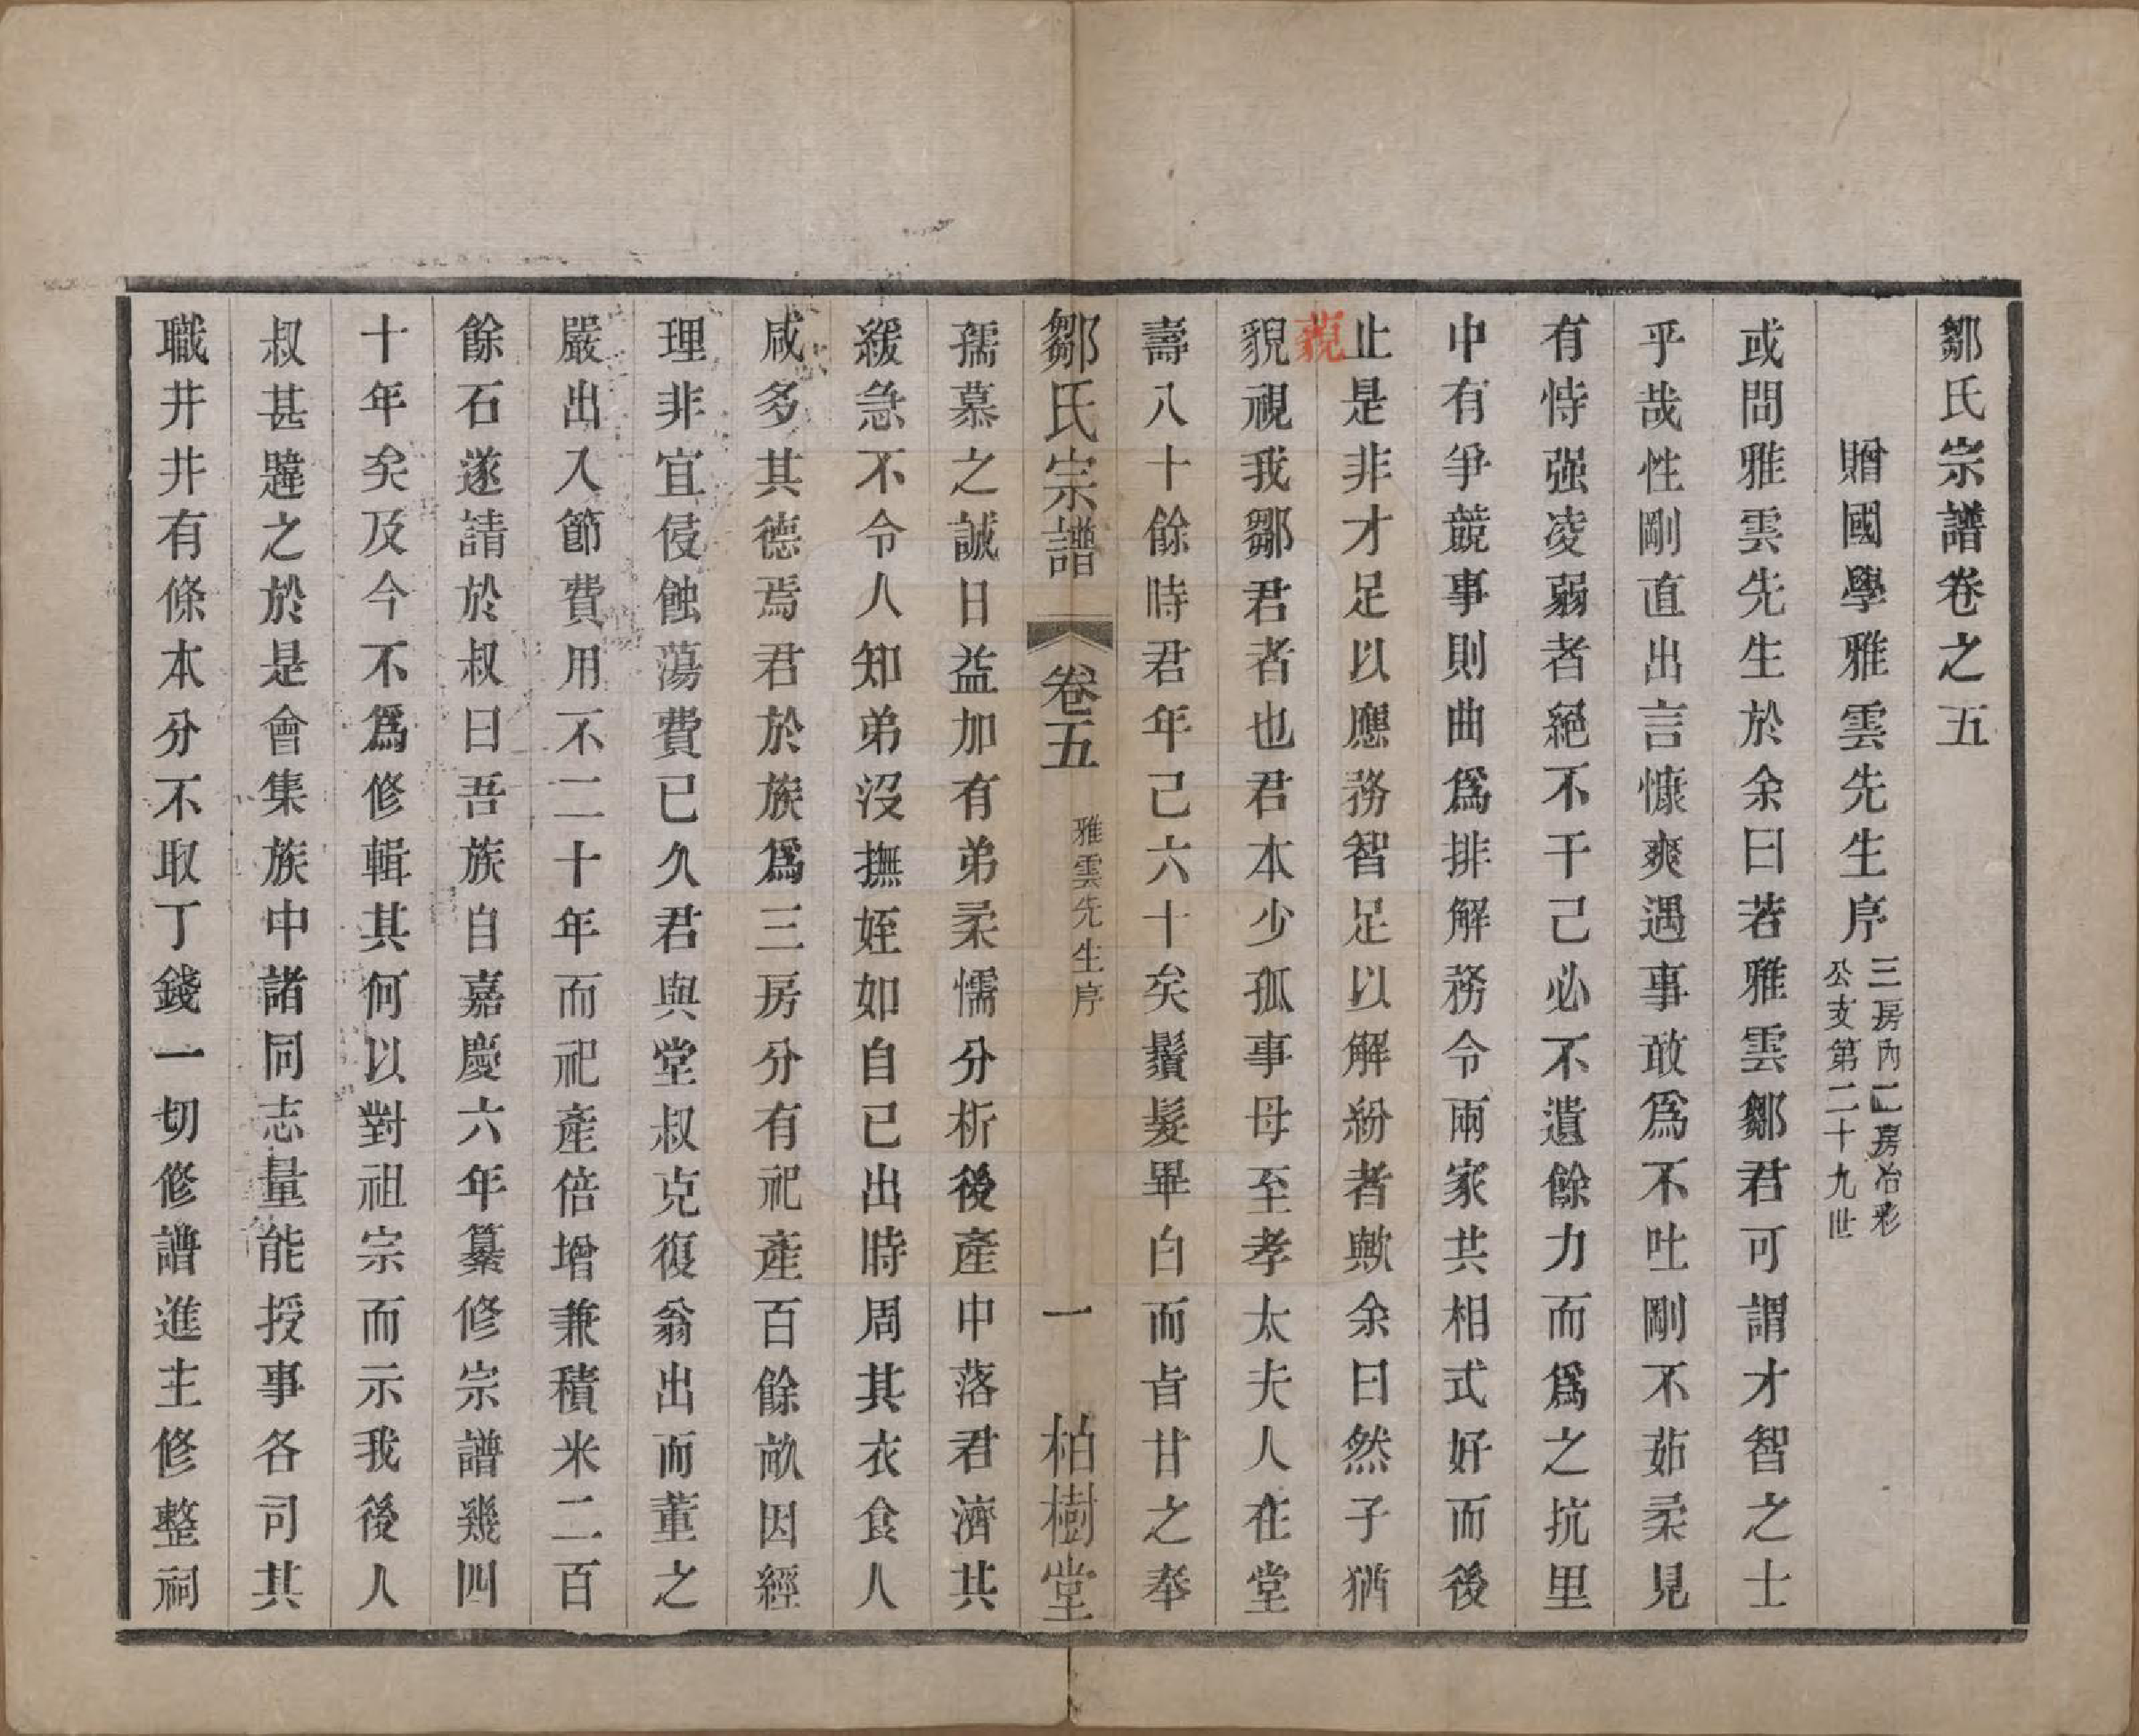 鄒氏宗譜卷之五
贈國學雅雲先生序
三房內二房冶彩
公支第二十九世
或問雅雲先生於余曰若雅雲鄒君可謂才智之士
乎哉性剛直出言慷爽遇事敢爲不吐剛不茹柔見
有恃强凌弱者絕不干己必不遺餘力而爲之抗里
中有爭競事則曲爲排解務令兩家共相式好而後
止是非才足以應務智足以解紛者歟余曰然子猶
藐
貎視我鄒君者也君本少孤事母至孝太夫人在堂
壽八十餘時君年己六十矣鬚髮畢白而旨甘之奉
鄒氏宗譜
卷五
雅雲先生序
一
柏樹堂
孺慕之誠日益加有弟柔懦分析後產中落君濟其
緩急不令人知弟沒撫姪如自已出時周其衣食人
咸多其德焉君於族爲三房分有祀產百餘畝因經
理非宜侵蝕蕩費已久君與堂叔克復翁出而董之
嚴出入節費用不二十年而祀產倍增兼積米二百
餘石遂請於叔曰吾族自嘉慶六年纂修宗譜幾四
十年矣及今不爲修輯其何以對祖宗而示我後人
叔甚韙之於是會集族中諸同志量能授事各司其
職井井有條本分不取丁錢一切修譜進主修整祠